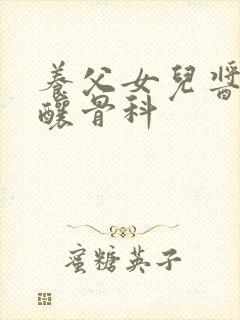 養父女兒醬
釀骨科
蜜糖英子